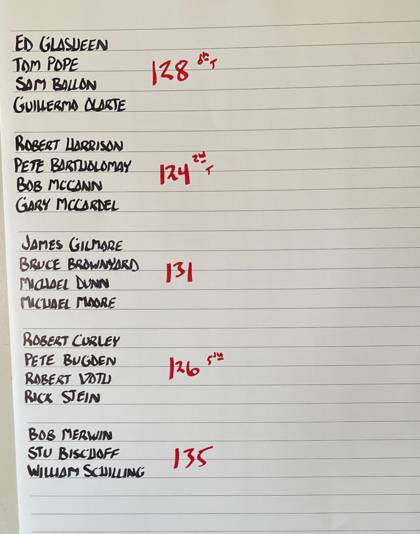 ED GLASHEEN
TOM POPE
SAM BALLON
GUILLERMO OLARTE
128 6th T
ROBERT HARRISON
PETE BARTHOLOMAY
BOB MCCANN
GARY MCCARDEL
124 2nd T
JAMES GILMORE
BRUCE BROWNYARD
MICHAEL DUNN
MICHAEL MOORE
131
ROBERT CURLEY
PETE BUGDEN
ROBERT VOTH
RICK STEIN
126 5th
BOB MERWIN
STU BISCHOFF
WILLIAM SCHILLING
135